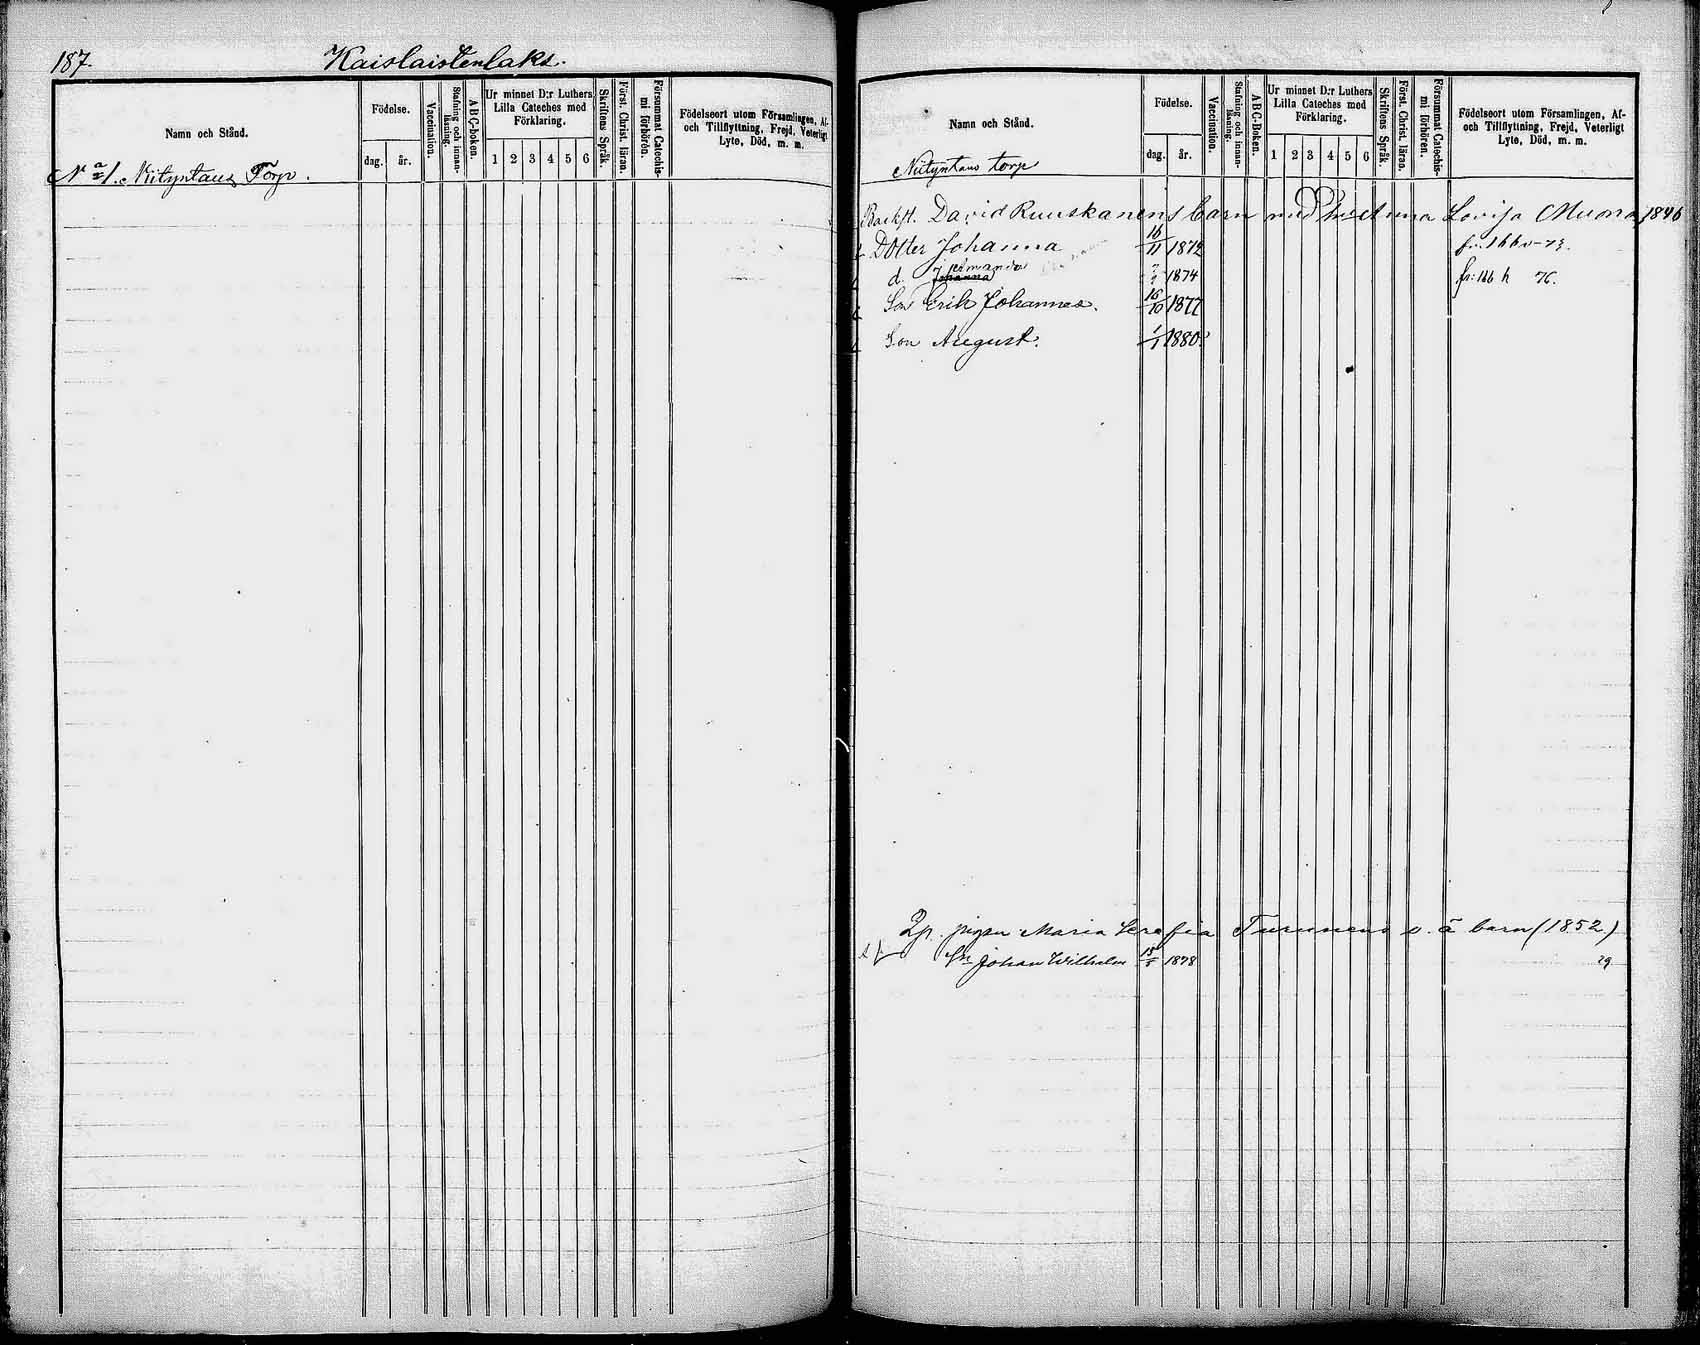 187.
Kaislaistenlaks.
Namn och Stånd.
Födelse.
dag.
år.
Vaccination.
Stafning och innan-läsning.
ABC-boken.
Ur minnet D:r Luthers
Lilla Cateches med
Förklaring.
1 2 3 4 5 6
Skriftens Språk.
Först. Christ. läran.
Försummat Catechis-
mi förhören.
Födelseort utom Församlingen, Af-
och Tillflyttning, Frejd, Veterligt
Lyte, Död, m. m.
Niityntaus Torp.
Namn och Stånd.
Födelse.
dag.
år.
Vaccination.
Stafning och innan-läsning.
ABC-Boken.
Ur minnet D:r Luthers
Lilla Cateches med
Förklaring.
1 2 3 4 5 6
Skriftens Språk.
Först. Christ. läran.
Försummat Catechis-
mi förhören.
Födelseort utom Församlingen, Af-
och Tillflyttning, Frejd, Veterligt
Lyte, Död, m. m.
Niityntaus torp
David Ruuskanens barn med Lovisa Muona 1846
Dotter Johanna 16/11 1872
d. Johanna 1874 fr: 166 h 76.
Son Erik Johannes. 16/10 1877
Son August. 1/1 1880.
pigan Maria Serafia Turunens o. ä barn (1852)
Sn Johan Wilhelm 15/5 1878 29